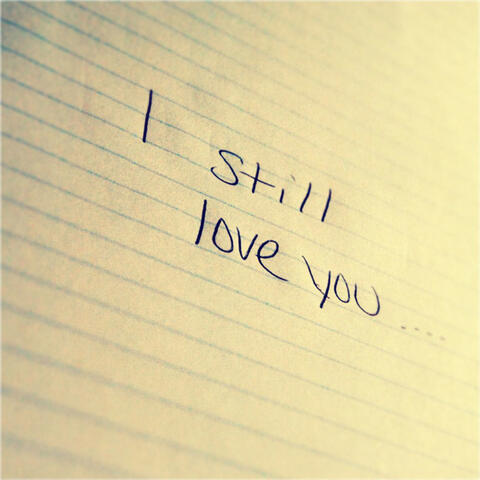 I
still
love you....